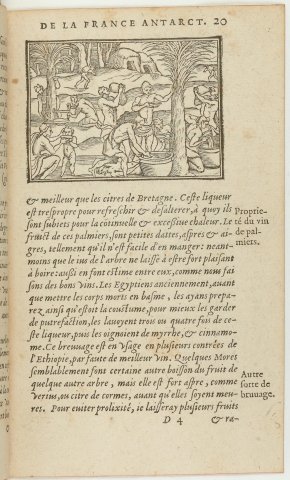 DE LA FRANCE ANTARCT. 20
& meilleur que les citres de Bretagne. Ceste liqueur
est trespropre pour refreschir & desalterer, à quoy ils
sont subiets pour la cōtinuelle & excessiue chaleur. Le
fruict de ces palmiers, sont petites dattes, aspres & ai-
gres, tellement qu'il n'est facile d'en manger: neant-
moins que le ius de l'arbre ne laisse à estre fort plaisant
à boire: aussi en font estime entre eux, comme nous fai-
sons des bons vins. Les Egyptiens anciennement, auant
que mettre les corps morts en basme, les ayans prepa-
rez ainsi qu'estoit la coustume, pour mieux les garder
de putrefaction, les lauoyent trois ou quatre fois de ce-
ste liqueur, puis les oignoient de myrrhe, & cinnamo-
me. Ce breuuage est en vsage en plusieurs contrées de
l'Ethiopie, par faute de meilleur vin. Quelques Mores
semblablement font certaine autre boisson du fruit de
quelque autre arbre, mais elle est fort aspre, comme
vertus, ou citre de cormes, auant qu'elles soyent meu-
res. Pour euiter prolixité, ie laisseray plusieurs fruits
D 4 & ra-
Proprie-
té du vin
de pal-
miers.
Autre
sorte de
bruuage.